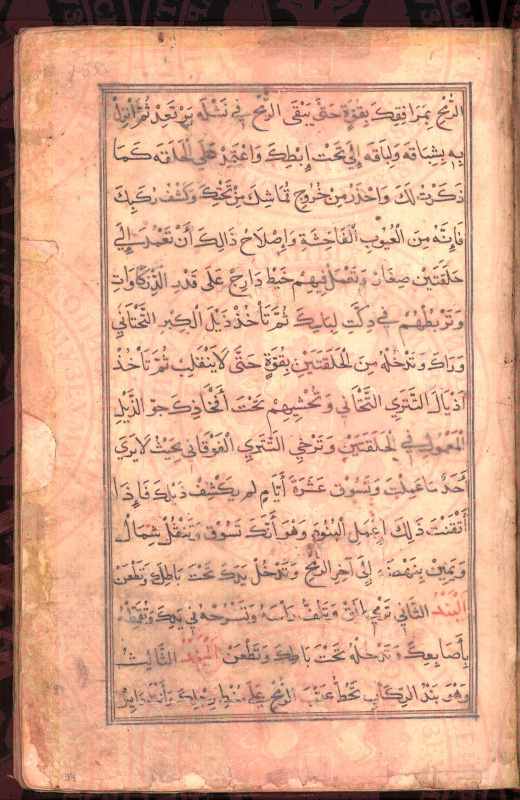 الرمح بمرافقك بقوة حتى يبقى الرمح في نشله يرتعد ثم أنزل
به بشباقه ولباقه إلى تحت إبطك واعتمد على الحلقه كما
ذكرت لك واحذر من خروج قماشك من تحتك وكشف ركبك
فإنه من العيوب الفاحشة وإصلاح ذالك أن تعمد إلى
حلقتين صغار وتعمل فيهم خيط دارج على قدر
وتربطهم في دكت لباسك ثم تأخذ ذيل الكبر التحتاني
وراك وتدخله من الحلقتين بقوة حتى لا ينقلب ثم تأخذ
أذيال التتري التحتاني وتحشيهم تحت أفخاذك جو الذيل
المعمول في الحلقتين وترخي التتري الفوقاني بحيث لا يرى
أحد ما عملت وتسوق عشرة أيام لم يكشف ذيلك فإذا
أتقنت ذلك اعمل البنود وهو أنك تسوق وتنقل شمال
ويمين بنهضه إلى آخر الرمح وتدخل يدك تحت باطك وتطعن
البند الثاني ترمي وتلف رأسه وتسرحه في يدك
بأصابعك وتدخله تحت باطك وتطعن البند الثالث
وهو بند الركاب تحط عقب الرمح على مشط رجلك
185
94